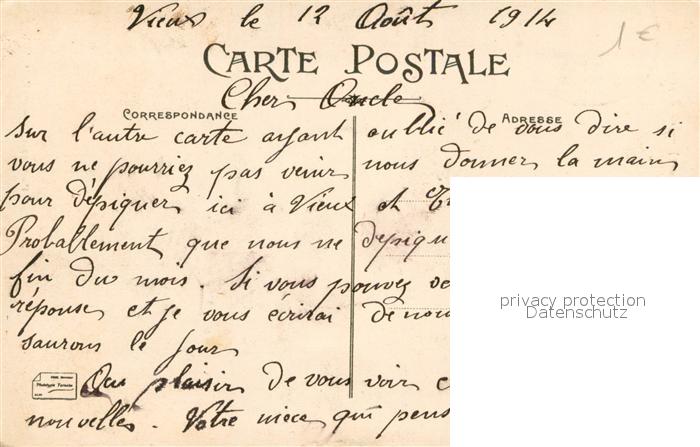 Vieux le 12 Août 1914
1 €
CARTE POSTALE
Cher Oncle
CORRESPONDANCE
ADRESSE
Sur l'autre carte ayant oublié de vous dire si
vous ne pourriez pas venir nous donner la main
pour dépiquer ici à Vieux et
Proballement que nous ne dépiqu
fin du mois. Si vous pouvez
réponse et je vous écrirai de nou
saurons le jour
privacy protection
Datenschutz
Au plaisir de vous voir
nouvelles. Votre nièce qui pens